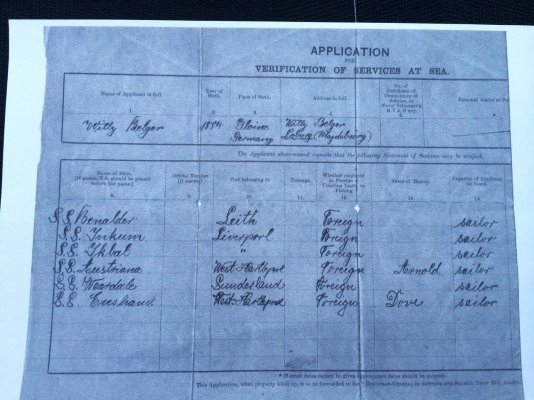 APPLICATION
FOR
VERIFICATION OF SERVICES AT SEA.
Name of Applicant in full. Year of Birth. Place of Birth. Address in full. No. of Certificate of Competency or Service, or Naval Volunteer's if any.
1. 2. 3.
Willy Belger 1884 Germany Willy Belger Loburg (Magdeburg)
The Applicant above-named requests that the following Statement of Services may be verified.
Name of Ship. (If steam, S.S. should be placed before the name.) Official Number (if known). Port belonging to Tonnage. Whether employed in Foreign or Coasting Trade, or Fishing. Name of Master. Capacity of Applicant on board.
8. 9. 10. 11. 12. 13. 14.
S.S. Benalder Leith Foreign sailor
S.S. Inkum Liverpool Foreign sailor
S.S. Ikbal " Foreign sailor
S.S. Austriana West Hartlepool Foreign Arnold sailor
S.S. Weardale Sunderland Foreign sailor
S.S. West Hartlepool Foreign Dove sailor
* If exact dates cannot be given approximate dates should be entered.
This Application, when properly filled up, is to be forwarded to the "REGISTRAR-GENERAL OF SHIPPING AND SEAMEN, Tower Hill, London,